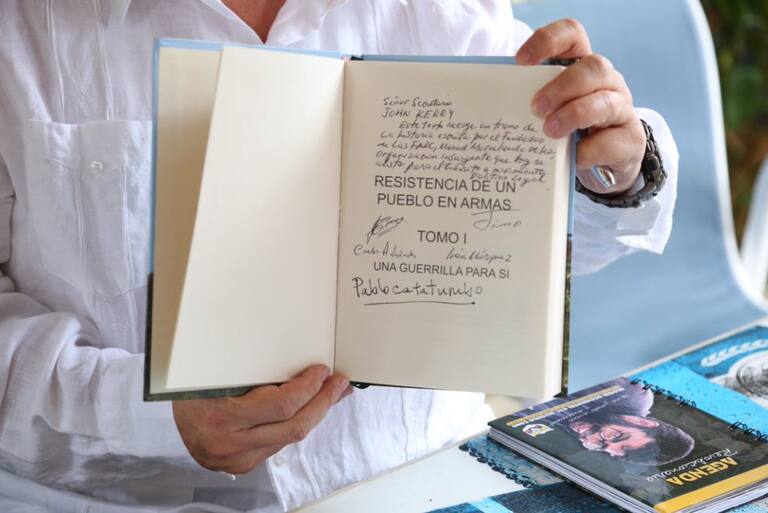 Señor Secretario
JOHN KERRY
Este texto recoge un tramo de
la historia escrita por el fundador
de las FARC, Manuel Marulanda Vélez,
organización insurgente que hoy se
alista para el tránsito a movimiento
político legal.
RESISTENCIA DE UN
PUEBLO EN ARMAS
TOMO I
Iván Márquez
UNA GUERRILLA PARA SI
Pablo Catatumbo
AGENDA
Revolucionaria